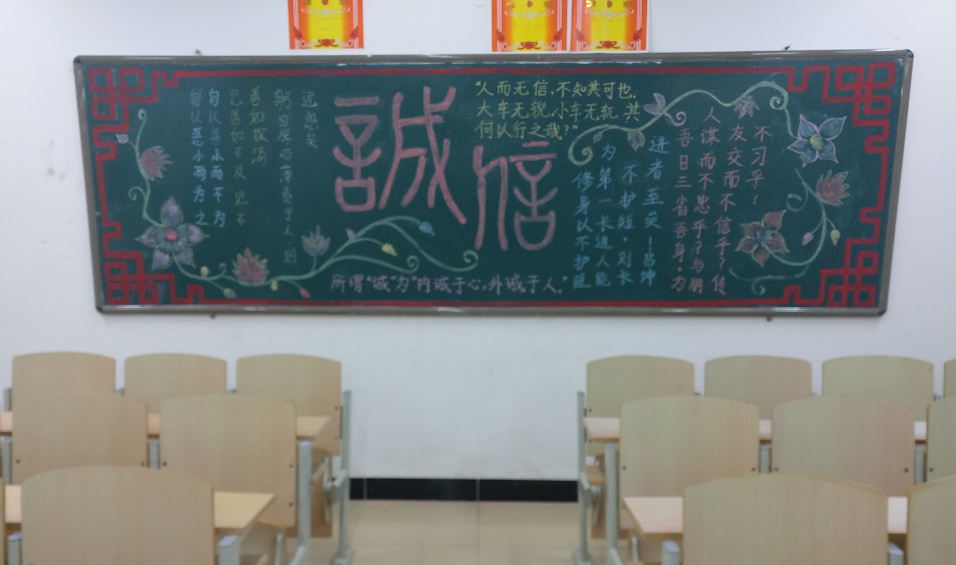 勿以恶小而为之
勿以善小而不为
见善如不及 见不
善如探汤
躬自厚而薄责于人,则
远怨矣
誠信
"人而无信,不知其可也。
大车无 小车无 其
何以行之哉?"
修身以不护短
为第一长进人能
不护短,则长
进者至矣!—吕坤
吾日三省吾身,为
人谋而不忠乎?与朋
友交而不信乎?传
不习乎?
所谓"诚"为"内诚于心,外诚于人。"